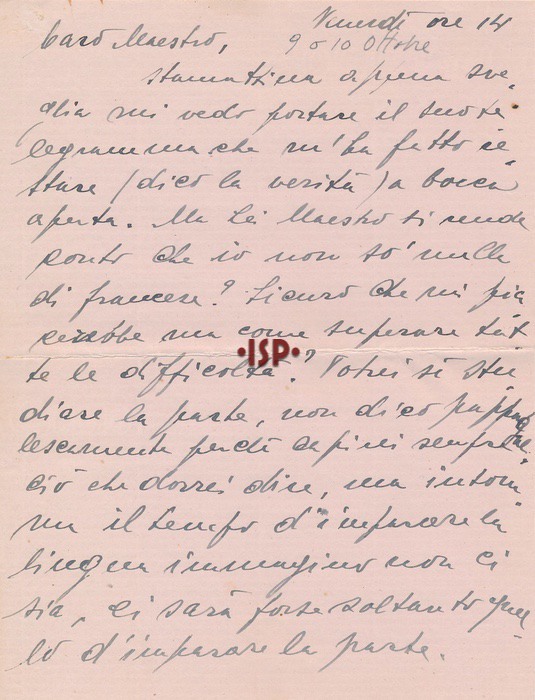 Venerdì ore 14
Caro Maestro,
9 o 10 Ottobre
stamattina appena sve-
glia mi vedo portare il suo te-
legramma che m'ha fatto re-
stare (dico la verità) a bocca
aperta. Ma Lei Maestro si rende
conto che io non so' nulla
di francese? Sicuro che mi pia-
cerebbe ma come superare tut-
te le difficoltà? Potrei sì stu
diare la parte, non dico pappagal
lescamente perché capirei sempre
ciò che dovrei dire, ma insom
ma il tempo d'imparare la
lingua immagino non ci
sia, ci sarà forse soltanto quel
lo d'imparare la parte.
•ISP•